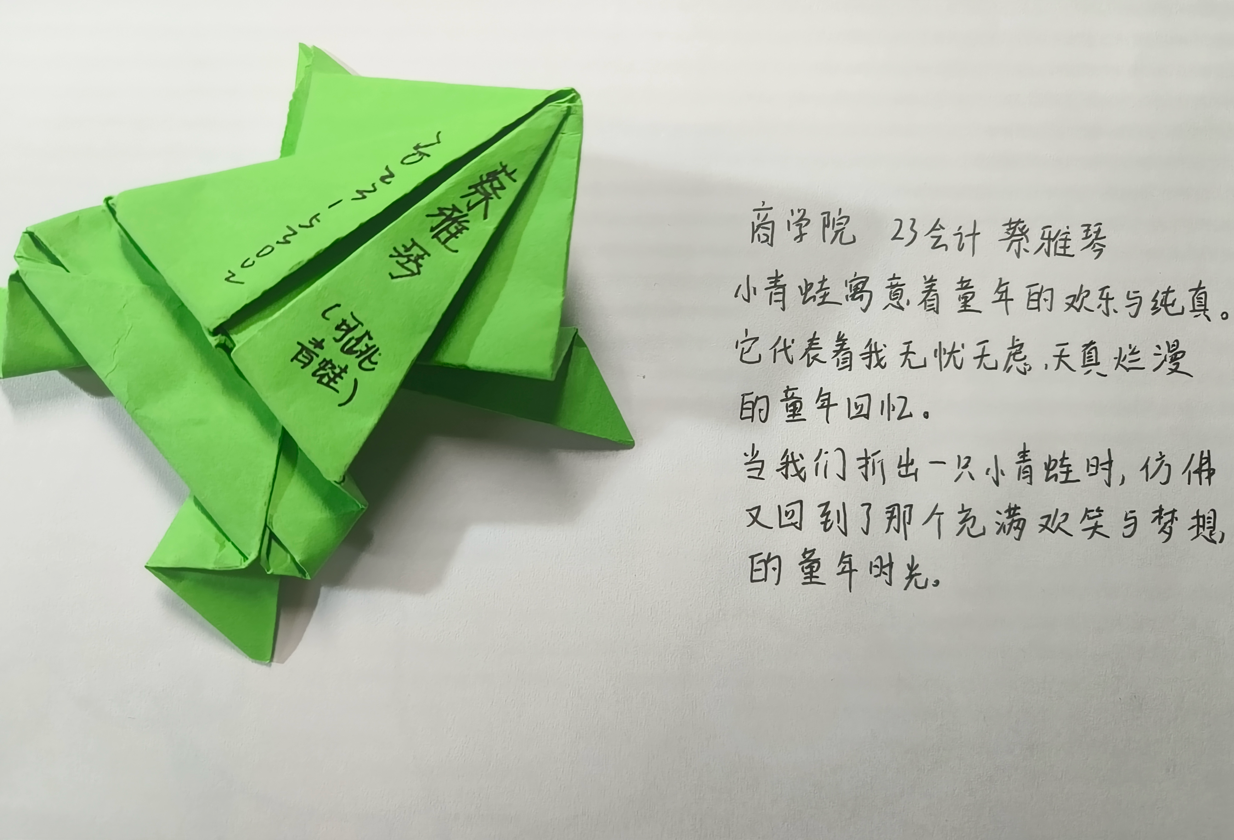 蔡雅琴
(可跳
青蛙)
商学院 23会计 蔡雅琴
小青蛙寓意着童年的欢乐与纯真。
它代表着我无忧无虑、天真烂漫
的童年回忆。
当我们折出一只小青蛙时,仿佛
又回到了那个充满欢笑与梦想,
的童年时光。